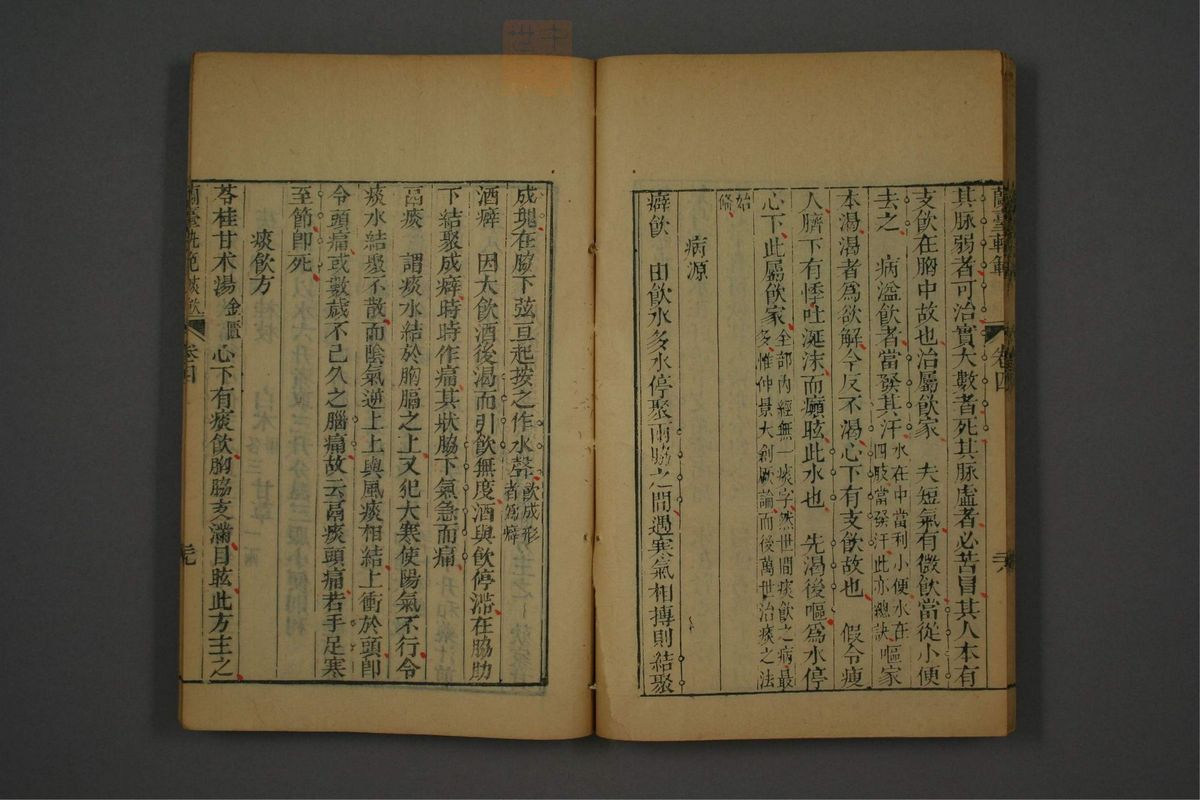 蘭臺軌範 卷四
其脉弱者可治實大數者死其脉虛者必苦冒其人本有
支飲在胸中故也治屬飲家 夫短氣有微飲當從小便
去之 病溢飲者當發其汗水在中當利小便水在四肢當發汗此亦總訣嘔家
本渴渴者爲欲解今反不渴心下有支飲故也 假令瘦
人臍下有悸吐涎沫而癲眩此水也 先渴後嘔爲水停
心下此屬飲家全部內經無一痰字然世間痰飲之病最多惟仲景大創厥論而後萬世治痰之法
始備
病源
癖飲 由飲水多水停聚兩脇之間遇寒氣相搏則結聚
成塊在脇下弦亘起按之作水聲飲成形者爲癖
酒癖 因大飲酒後渴而引飲無度酒與飲停滯在脇助
下結聚成癖時時作痛其狀脇下氣急而痛
鬲痰 謂痰水結於胸膈之上又犯大寒使陽氣不行令
痰水結聚不散而陰氣逆上上與風痰相結上衝於頭卽
令頭痛或數歲不已久之腦痛故云鬲痰頭痛若手足寒
至節卽死
痰飲方
苓桂甘术湯金匱 心下有痰飲胸脇支滿目眩此方主之
蘭臺軌範 痰飲 卷四